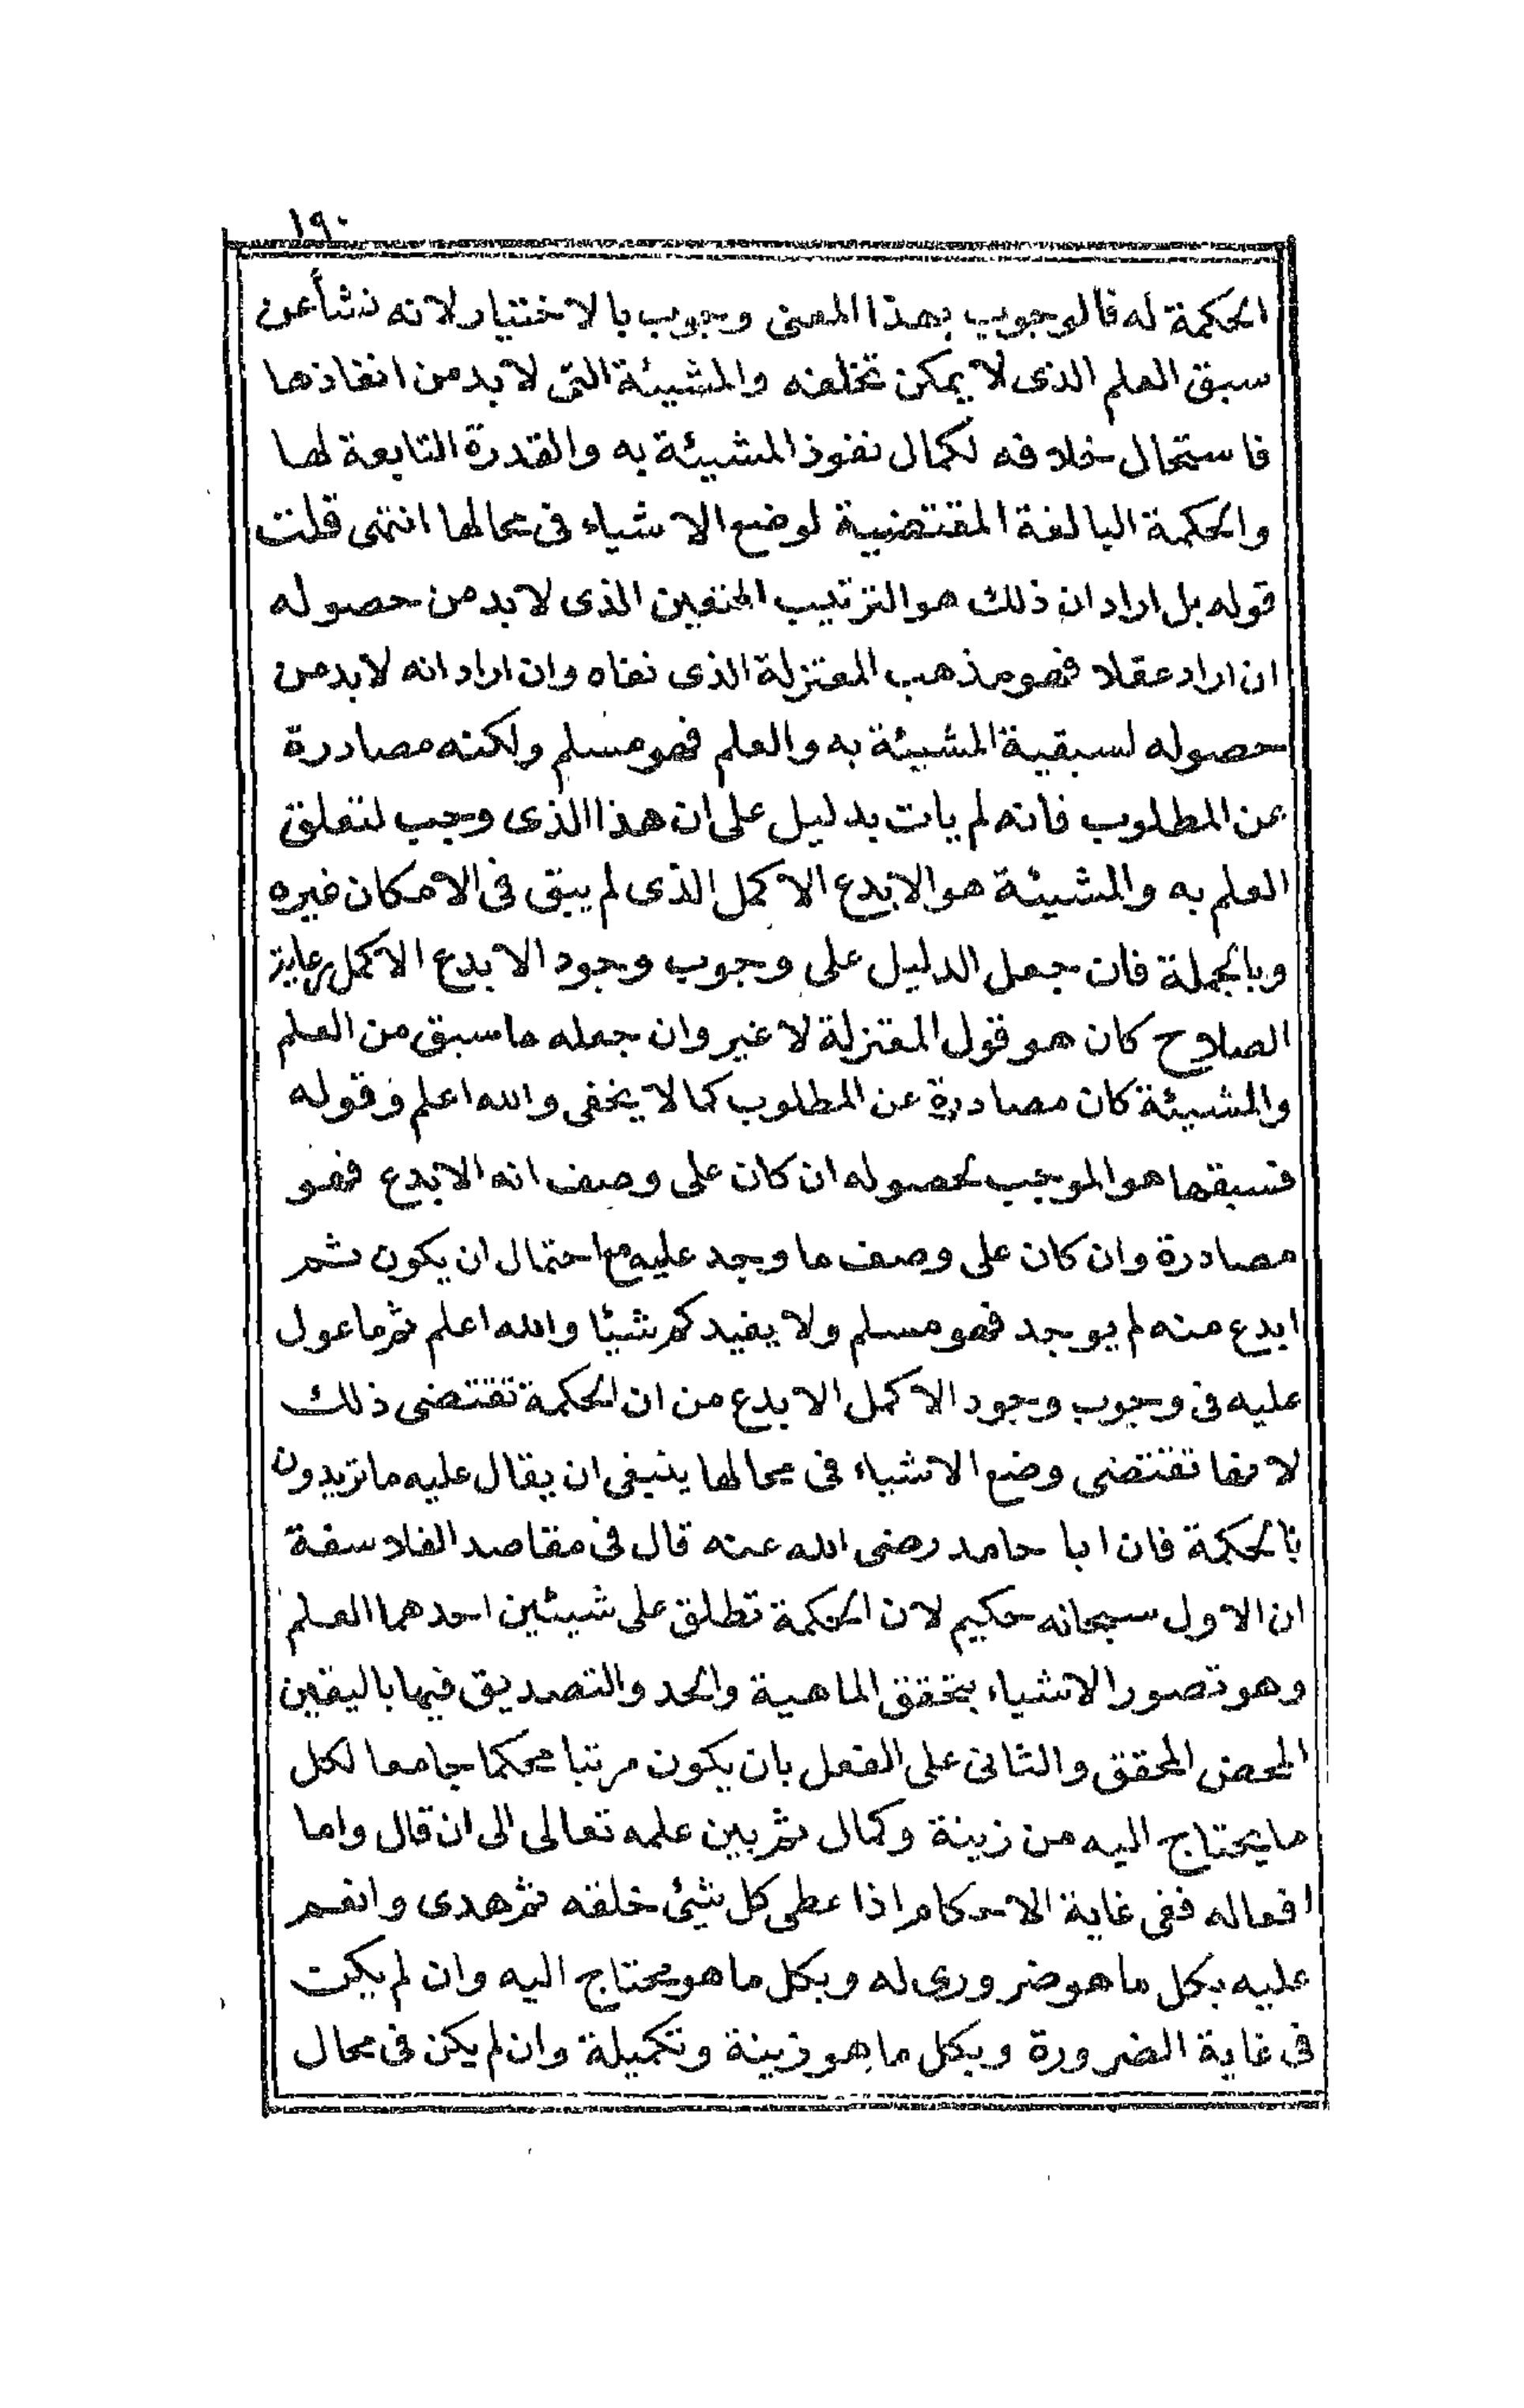 ١٩٠
الحكمة له فالوجوب بهذا المعنى وجوب بالاختيار لانه نشأ عن
سبق العلم الذى لا يمكن تخلفه والمشيئة التى لا بد من انفاذها
فاستحال خلافه لكمال نفوذ المشيئة به والقدرة التابعة لها
والحكمة البالغة المقتضية لوضع الاشياء فى محالها انتهى قلت
قوله بل اراد ان ذلك هو الترتيب المتعين الذى لا بد من حصوله
ان اراد عقلا فهو مذهب المعتزلة الذى نفاه وان اراد انه لا بد من
حصوله لسبقية المشيئة به والعلم فهو مسلم ولكنه مصادرة
عن المطلوب فانه لم يات بدليل على ان هذا الذى وجب لتعلق
العلم به والمشيئة هو الابدع الاكمل الذى لم يبق فى الامكان غيره
وبالجملة فان جعل الدليل على وجوب وجود الابدع الاكمل رعاية
الصلاح كان هو قول المعتزلة لا غير وان جعله ما سبق من العلم
والمشيئة كان مصادرة عن المطلوب كما لا يخفى والله اعلم وقوله
فسبقهما هو الموجب لحصوله ان كان على وصف انه الابدع فهو
مصادرة وان كان على وصف ما وجد عليه مع احتمال ان يكون ثم
ابدع منه لم يوجد فهو مسلم ولا يفيدكم شيئا والله اعلم ثم ما عول
عليه فى وجوب وجود الاكمل الابدع من ان الحكمة تقتضى ذلك
لانها تقتضى وضع الاشياء فى محالها ينبغى ان يقال عليه ما تريدون
بالحكمة فان ابا حامد رضى الله عنه قال فى مقاصد الفلاسفة
ان الاول سبحانه حكيم لان الحكمة تطلق على شيئين احدهما العلم
وهو تصور الاشياء بتحقق الماهية والحد والتصديق فيها باليقين
المحض المحقق والثانى على الفعل بان يكون مرتبا محكما جامعا لكل
ما يحتاج اليه من زينة وكمال ثم بين علمه تعالى الى ان قال واما
افعاله ففى غاية الاحكام اذا عطى كل شئ خلقه ثم هدى وانعم
عليه بكل ما هو ضرورى له وبكل ما هو محتاج اليه وان لم يكن
فى غاية الضرورة وبكل ما هو زينة وتكميلة وان لم يكن فى محال